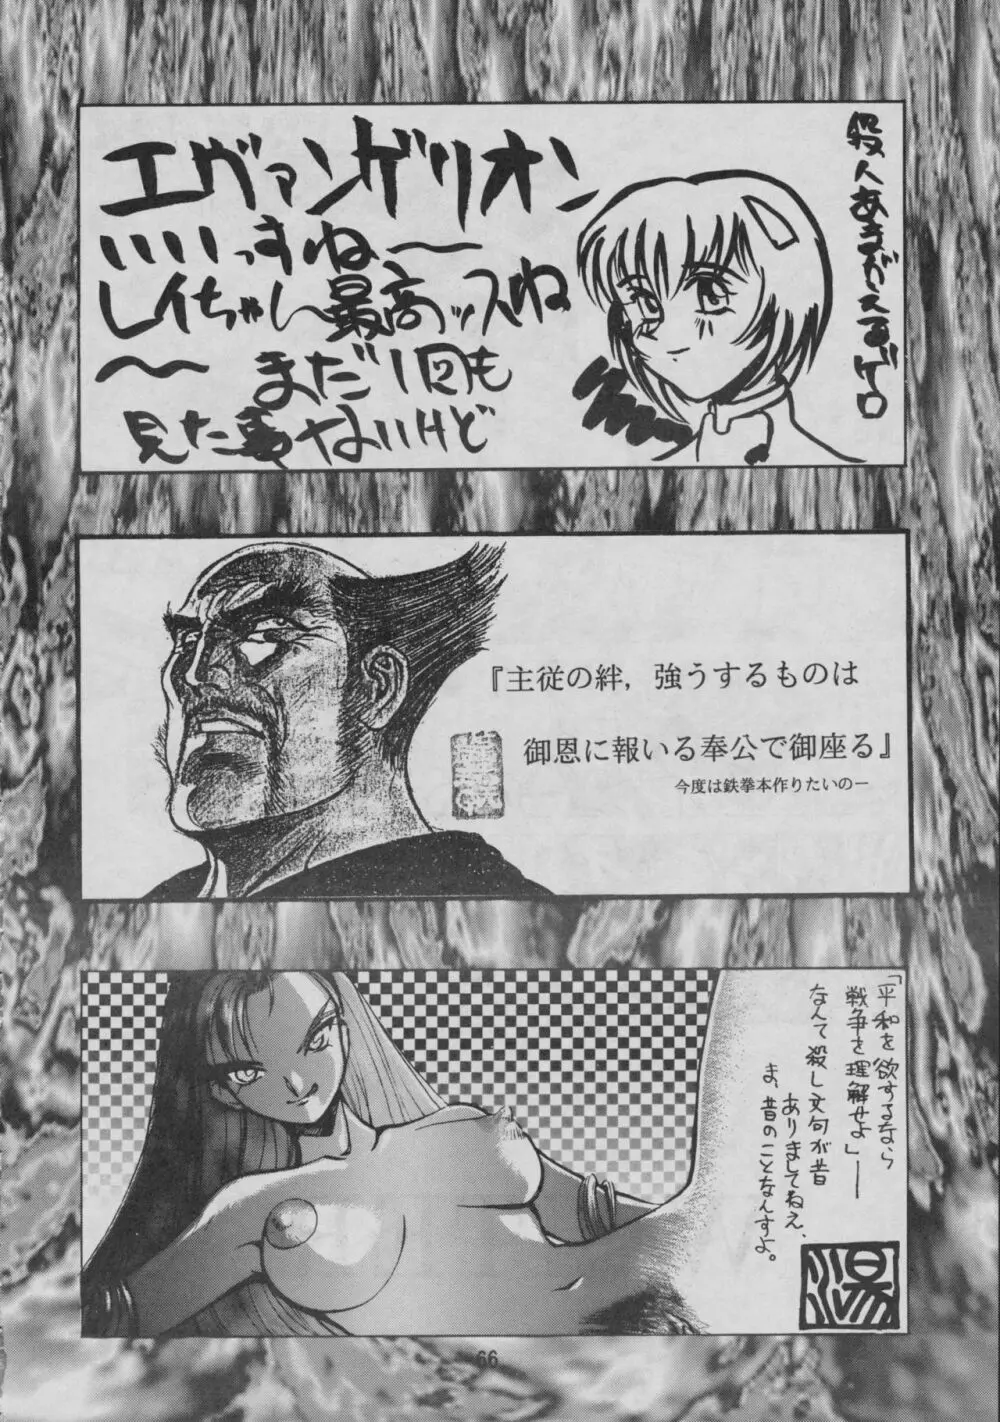 エヴァンゲリオン
いいっすね〜
レイちゃん最高ッスね
〜 まだ1回も
見た事ないけど
殺人あまがえるゲロ
『主従の絆，強うするものは
御恩に報いる奉公で御座る』
今度は鉄拳本作りたいのー
「平和を欲するなら
戦争を理解せよ」――
なんて殺し文句が昔
ありましてねえ、
ま、昔のことなんすよ。
湯
66